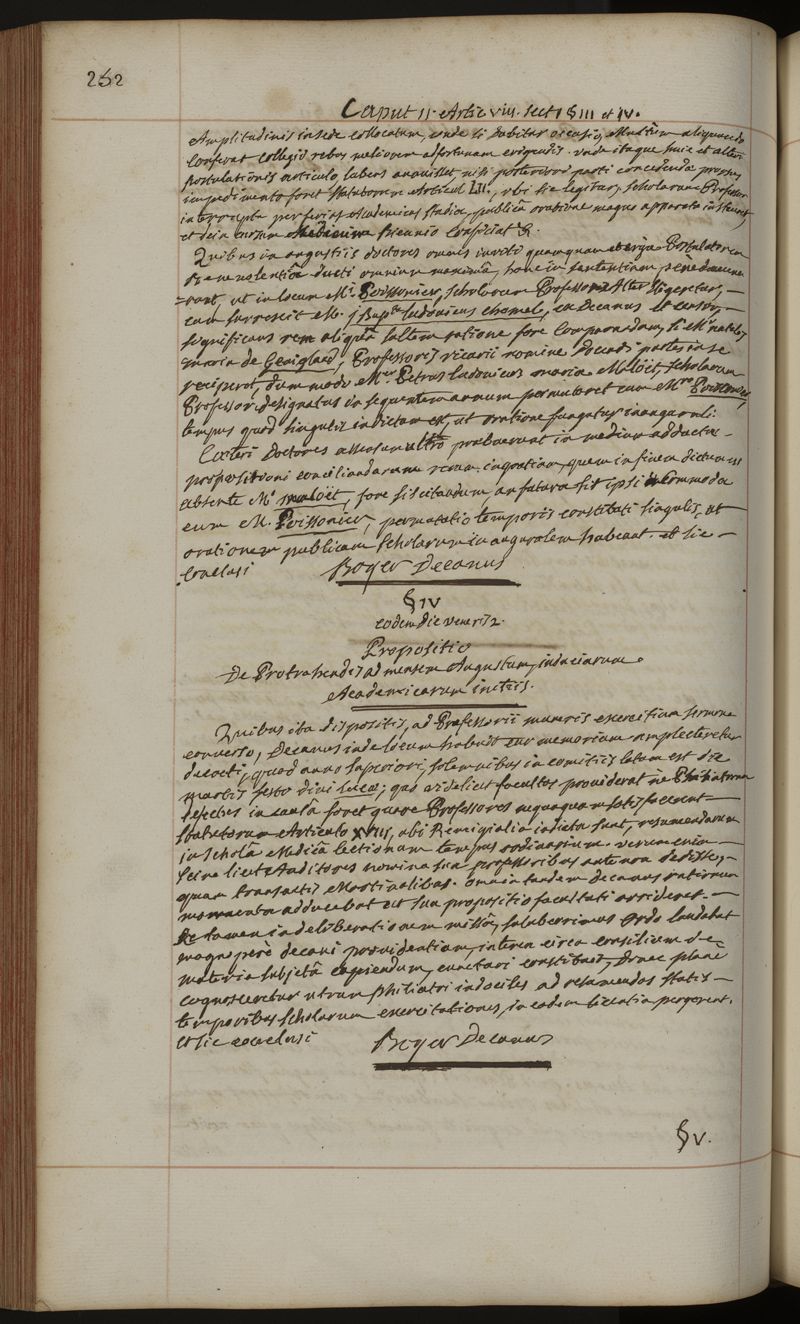 252
Caput II. Artic VIII. sect I § III et IV.
Amplitudinis in sede collocatum, unde si dabitur occasio, multum aliquando
conferat collegio rebus meliorem ad fortunam erigendis. unde itaque huic et alteri
postulationis articulo, lubens annuisset, nisi posteriori parti concedendæ
impedimento foret statutorum articul. LII., ubi sic legitur, scholarum Professor
interrupta per ferias academicas studia, publicâ oratione magno apparatu instauret
et dein cursum Medicinæ biennio conficiat &.
Quibus in angustiis doctores omnes inviti quamquam et erga Postulatorem
benevolentiâ ducti omnium maximâ, hanc in sententiam penè devene
=runt, ut in locum Mi. Poissonier, scholarum Professor alter eligeretur,
cum surrexit M. j Bapta. Ludovicus chomel, ex Decanus et censor,
significans rem aliquâ saltem ratione fore componendam, si Mr natalis
maria de Gevigland, Professoris vicarii nomine docendi partes in se
reciperet, dum modo Mer. Petrus Ludovicus maria Maloët, scholarum
Professor designatus in sequentem annum permutaret cum Mro Poissonier,
tempus quod singulis indictum est, ut oratione fungatur inaugurali.
Cæteri Doctores assensum ultrò præbuerunt in medium adductæ
propositioni conciliandarum rerum in gratiam, quem in finem dictum
absente Mo maloët, fore sciscitandum an futura sit ipsi incommoda
cum M. Poissonier, permutatio temporis constituti singulis, ut
orationem publicam scholarum inauguralem habeant. et sic
conclusi Boyer Decanus
§ IV
eodem die veneris 2.
Propositio
De Protrahendis ad mensem Augustum, induciarum
Academicarum initiis.
Quibus ita dispositis, ad Professorii muneris exercitium sermone
converso, Decanus inde locum habuit cur memoriam amplecteretur
decreti, quod anno superiori, solemnibus in comitiis latum est die
martis festo divi lucæ; quo videlicet facultas providerat ne Philiatrorum
defectus in causâ foret quare Professores nequaquam satisfacerent
statutorum Articulo XVIII, ubi Remigialia indicta sunt, resumendarum
in scholâ Medicâ lectionum tempus ordinarium. verum enim
scire licet Auditores nomina sua professoribus antenon dedisse,
quam transactis Martinalibus. omnia tandem decanus rationum
momenta adducebat ut sua propositio facultati arrideret.
Re tamen in deliberationem missâ, saluberrimus ordo laudabat
magnoperè decani providentiam, interea circa consilium de
materia subjectâ capiendum, cunctari constituit, donec planè
cognosceretur utrum philiatri indociles ad resumendas statis
temporibus scholarum exercitationes, in eadem licentia pergerent.
et sic conclusi Boyer Decanus
§ V.